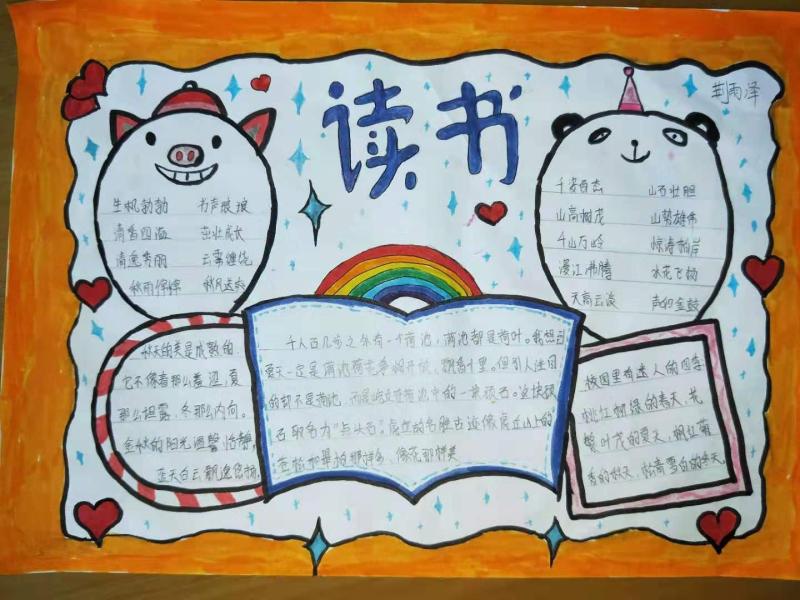 读书
荆雨泽
生机勃勃 书声朗琅
清香四溢 茁壮成长
清逸秀丽 云雾缭绕
秋雨绵绵 秋风送爽
千姿百态 山石壮胆
山高树茂 山势雄伟
千山万岭 惊涛拍岸
漫江沸腾 水花飞扬
天高云淡 声如金鼓
秋天的美是成熟的
它不像春那么羞涩,夏
那么坦露,冬那么内向。
金秋的阳光温馨恬静,
蓝天白云飘逸悠扬
千人石几步之外有一个荷池,两池都是荷叶。我想
夏天一定是两池荷花争妍开放,飘香十里。但引人注目
的却不是荷池,而是屹立在荷池中的一块顽石。这块顽
石取名为“点头石”虎丘的名胜古迹像虎丘山上的
那样多,像花那样美
校园里有迷人的四季
桃红柳绿的春天,花
繁叶茂的夏天,枫红菊
香的秋天,松青雪白的冬天